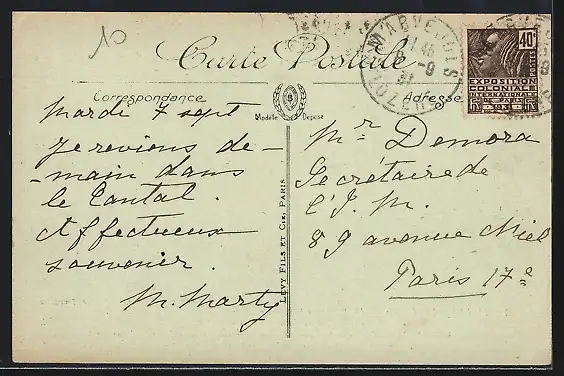 10
Carte Postale
Correspondance
Adresse
MARVEJOLS
LOZERE
8 -9
31
40c
POSTES
EXPOSITION
COLONIALE
INTERNATIONALE
DE PARIS
1931
Modèle Déposé
LEVY FILS ET Cie, PARIS
Mardi 7 sept
Je reviens de-
-main dans
le Cantal.
Affectueux
souvenir.
M. Marty
Mr Demora
Secrétaire de
l'I. M.
89 avenue Niel
Paris 17e